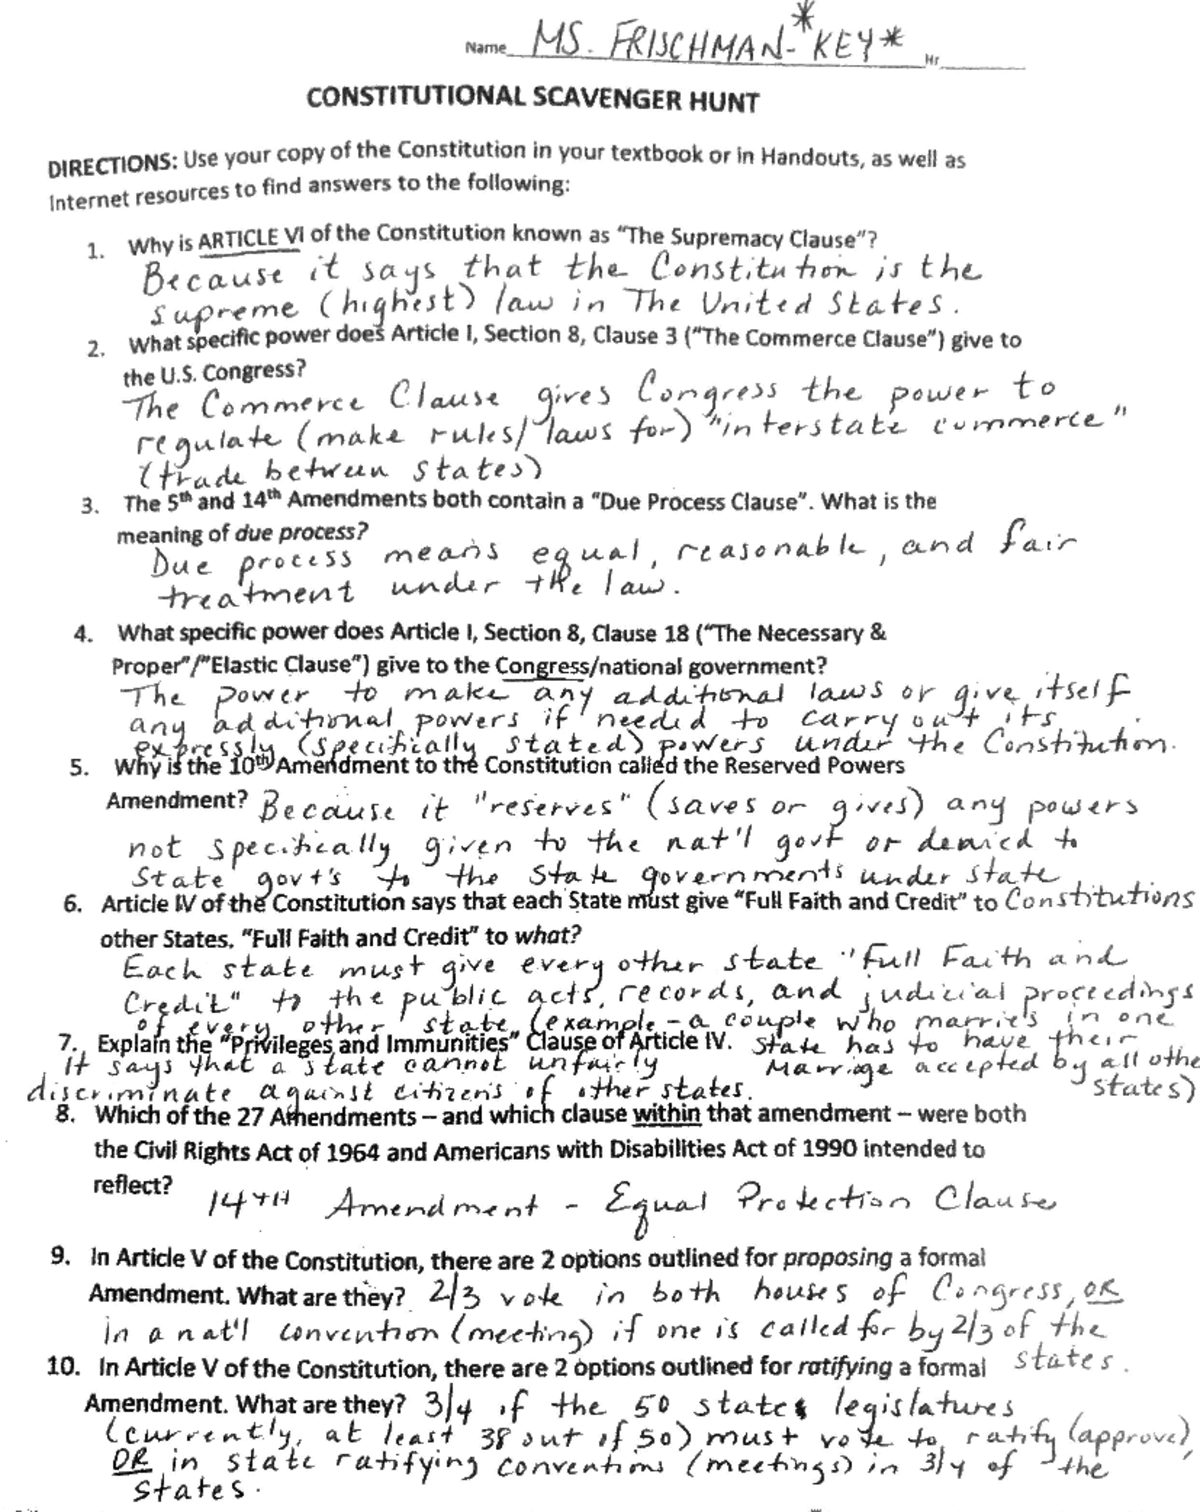 Name MS. FRISCHMAN-*KEY* Hr
CONSTITUTIONAL SCAVENGER HUNT
DIRECTIONS: Use your copy of the Constitution in your textbook or in Handouts, as well as
Internet resources to find answers to the following:
1. Why is ARTICLE VI of the Constitution known as "The Supremacy Clause"?
Because it says that the Constitution is the
supreme (highest) law in The United States.
2. What specific power does Article I, Section 8, Clause 3 ("The Commerce Clause") give to
the U.S. Congress?
The Commerce Clause gives Congress the power to
regulate (make rules/laws for) "interstate commerce"
(trade between states)
3. The 5th and 14th Amendments both contain a "Due Process Clause". What is the
meaning of due process?
Due process means equal, reasonable, and fair
treatment under the law.
4. What specific power does Article I, Section 8, Clause 18 ("The Necessary &
Proper"/"Elastic Clause") give to the Congress/national government?
The power to make any additional laws or give itself
any additional powers if needed to carry out its
expressly (specifically stated) powers under the Constitution.
5. Why is the 10th Amendment to the Constitution called the Reserved Powers
Amendment? Because it "reserves" (saves or gives) any powers
not specifically given to the nat'l govt or denied to
State gov't's to the State governments under state
6. Article IV of the Constitution says that each State must give "Full Faith and Credit" to Constitutions
other States. "Full Faith and Credit" to what?
Each state must give every other state "Full Faith and
Credit" to the public acts, records, and judicial proceedings
of every other state (example - a couple who marries in one
7. Explain the "Privileges and Immunities" Clause of Article IV. State has to have their
It says that a state cannot unfairly Marriage accepted by all othe
discriminate against citizens of other states. states)
8. Which of the 27 Amendments – and which clause within that amendment – were both
the Civil Rights Act of 1964 and Americans with Disabilities Act of 1990 intended to
reflect? 14TH Amendment - Equal Protection Clause
9. In Article V of the Constitution, there are 2 options outlined for proposing a formal
Amendment. What are they? 2/3 vote in both houses of Congress, OR
in a nat'l convention (meeting) if one is called for by 2/3 of the
10. In Article V of the Constitution, there are 2 options outlined for ratifying a formal states.
Amendment. What are they? 3/4 of the 50 states legislatures
(currently, at least 38 out of 50) must vote to ratify (approve),
OR in state ratifying conventions (meetings) in 3/4 of the
States.